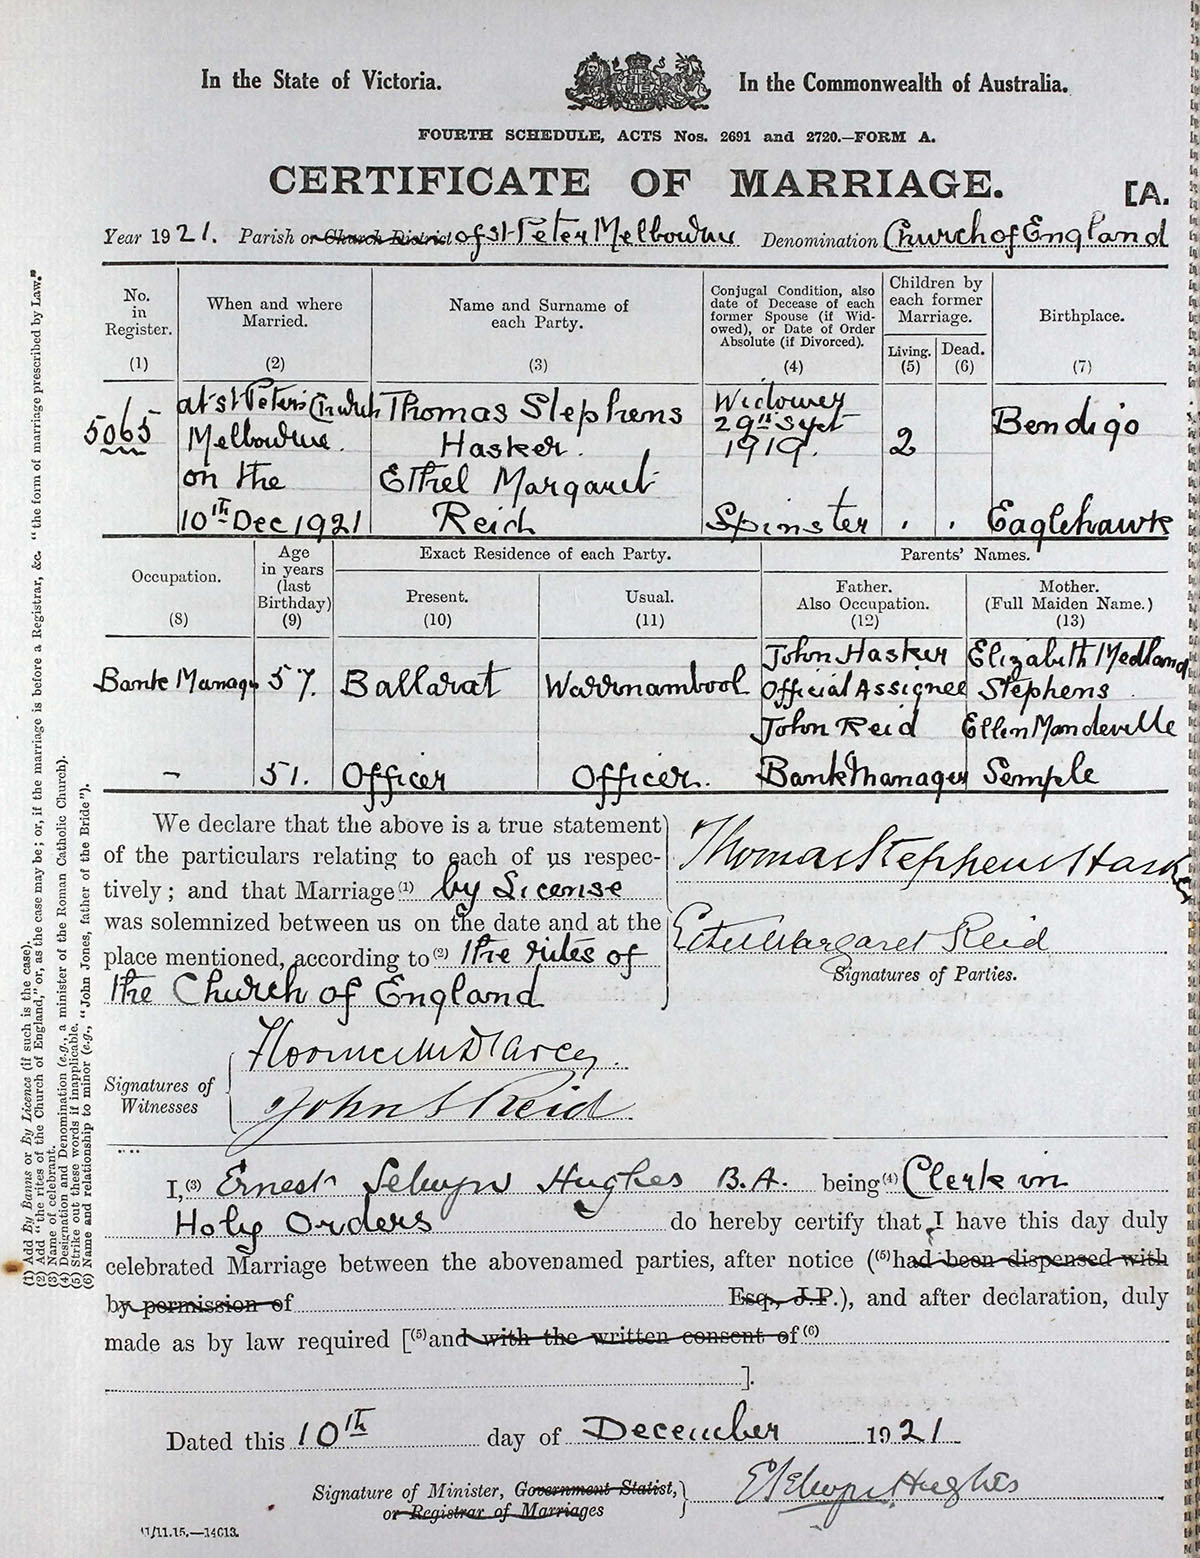 In the State of Victoria. In the Commonwealth of Australia.
FOURTH SCHEDULE, ACTS Nos. 2691 and 2720.—FORM A.
CERTIFICATE OF MARRIAGE. [A.
Year 1921. Parish or Church District of St Peter Melbourne Denomination Church of England
No. in Register. (1)
When and where Married. (2)
Name and Surname of each Party. (3)
Conjugal Condition, also date of Decease of each former Spouse (if Widowed), or Date of Order Absolute (if Divorced). (4)
Children by each former Marriage.
Living. (5) Dead. (6)
Birthplace. (7)
5065
at St Peter's Church
Melbourne.
on the
10th Dec 1921
Thomas Stephens
Hasker.
Ethel Margaret
Reid
Widower
29th Sept
1919.
Spinster
2
Bendigo
Eaglehawk
Occupation. (8)
Age in years (last Birthday) (9)
Exact Residence of each Party.
Present. (10)
Usual. (11)
Parents' Names.
Father. Also Occupation. (12)
Mother. (Full Maiden Name.) (13)
Bank Manager 57. Ballarat Warrnambool
John Hasker
Official Assignee
Elizabeth Medland
Stephens
John Reid
Bank Manager
Ellen Mandeville
Semple
– 51. Officer Officer.
We declare that the above is a true statement
of the particulars relating to each of us respec-
tively; and that Marriage (1) by License
was solemnized between us on the date and at the
place mentioned, according to (2) the rites of
the Church of England
Thomas Stephens Hasker
Ethel Margaret Reid
Signatures of Parties.
Signatures of Witnesses
D'Arcy.
John S Reid
I, (3) Ernest Selwyn Hughes B.A. being (4) Clerk in
Holy Orders do hereby certify that I have this day duly
celebrated Marriage between the abovenamed parties, after notice ((5) had been dispensed with
by permission of Esq., J.P.), and after declaration, duly
made as by law required [(5) and with the written consent of (6)
].
Dated this 10th day of December 1921
Signature of Minister, Government Statist,
or Registrar of Marriages
E Selwyn Hughes
11/11.15.—14613.
(1) Add By Banns or By Licence (if such is the case).
(2) Add "the rites of the Church of England," or, as the case may be; or, if the marriage is before a Registrar, &c. "the form of marriage prescribed by Law."
(3) Name of celebrant.
(4) Designation and Denomination (e.g., a minister of the Roman Catholic Church).
(5) Strike out these words if inapplicable.
(6) Name and relationship to minor (e.g., "John Jones, father of the Bride").